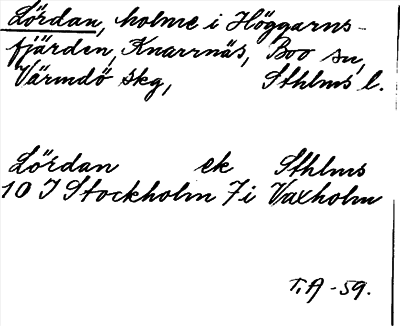 Lördan, holme i Höggarns-
fjärden, Knarrnäs, Boo sn,
Värmdö skg, Sthlms l.
Lördan ek Sthlms
10 I Stockholm 7i Vaxholm
T.A -59.